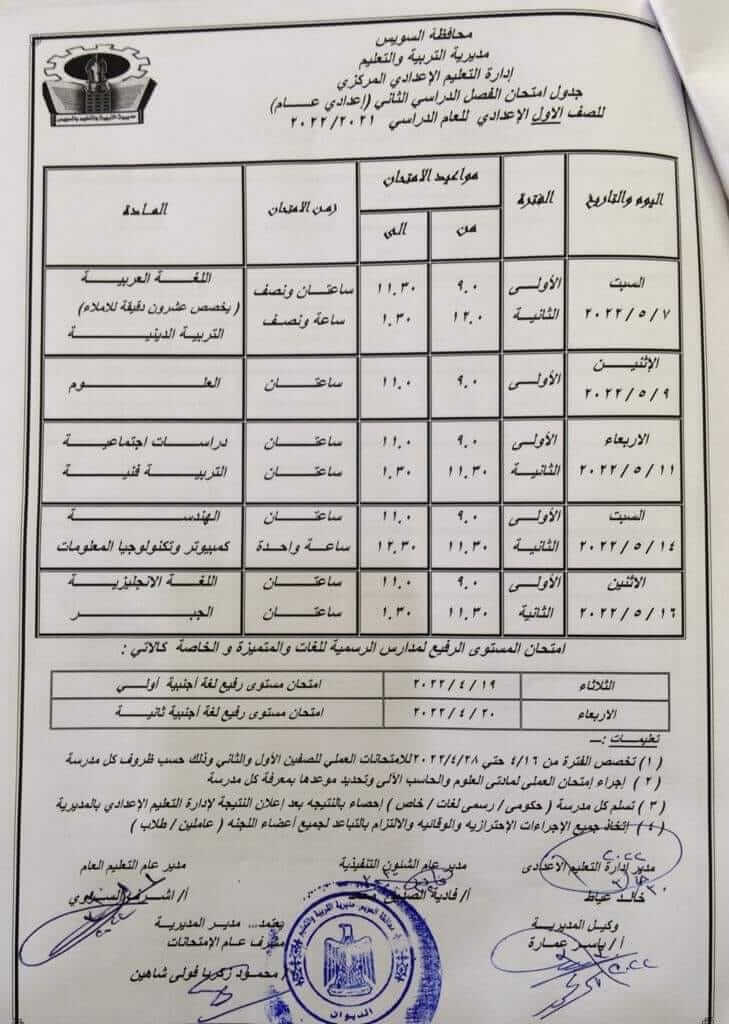 محافظة السويس
مديرية التربية والتعليم
إدارة التعليم الإعدادي المركزي
جدول امتحان الفصل الدراسي الثاني (إعدادي عـــام)
للصف الاول الإعدادي للعام الدراسي ٢٠٢٢/٢٠٢١
مديرية التربية والتعليم بالسويس
اليوم والتاريخ الفترة مواعيد الامتحان زمن الامتحان المـادة
من الى
السبت الأولى ٩.٠ ١١.٣٠ ساعتـــان ونصف اللغـــة العربيـــة
(يخصص عشرون دقيقة للاملاء)
٢٠٢٢/٥/٧ الثانية ١٢.٠ ١.٣٠ ساعة ونصف التربية الدينيـــة
الإثنيـــن
٢٠٢٢/٥/٩ الأولى ٩.٠ ١١.٠ ساعتـــان العلـــوم
الاربعاء الأولى ٩.٠ ١١.٠ ساعتـــان دراســـات اجتماعيـــة
٢٠٢٢/٥/١١ الثانية ١١.٣٠ ١.٣٠ ساعتـــان التربيـــة فنيـــة
السبت الأولى ٩.٠ ١١.٠ ساعتـــان الهندســـة
٢٠٢٢/٥/١٤ الثانية ١١.٣٠ ١٢.٣٠ ساعـــة واحـدة كمبيوتر وتكنولوجيا المعلومات
الاثنين الأولى ٩.٠ ١١.٠ ساعتـــان اللغـــة الانجليزيـــة
٢٠٢٢/٥/١٦ الثانية ١١.٣٠ ١.٣٠ ساعتـــان الجبـــر
امتحان المستوى الرفيع لمدارس الرسمية للغات والمتميزة و الخاصة كالاتي :
الثلاثاء ٢٠٢٢/٤/١٩ امتحان مستوى رفيع لغة أجنبية أولي
الاربعاء ٢٠٢٢/٤/٢٠ امتحان مستوى رفيع لغة أجنبية ثانيـــة
تعليمات :ـ
(١) تخصص الفترة من ٤/١٦ حتي ٢٠٢٢/٤/٢٨ للامتحانات العملي للصفين الأول والثاني وذلك حسب ظروف كل مدرسة
(٢) إجراء إمتحان العملى لمادتى العلوم والحاسب الألى وتحديد موعدها بمعرفة كل مدرسة
(٣) تسلم كل مدرسة (حكومى / رسمى لغات / خاص) إحصاء بالنتيجه بعد إعلان النتيجة لإدارة التعليم الإعدادي بالمديرية
(٤) إتخاذ جميع الإجراءات الإحترازيه والوقائيه والالتزام بالتباعد لجميع أعضاء اللجنه (عاملين / طلاب)
مدير إدارة التعليم الأعدادى مدير عام الشئون التنفيذية مدير عام التعليم العام
خالد عياط أ/ فادية أ/ اشرف
وكيل المديرية يعتمد... مديـر المديريـة
أ/ ياسر عمارة مشرف عـام الإمتحانات
أ/ محمود زكريا فولى شاهين
الديوان